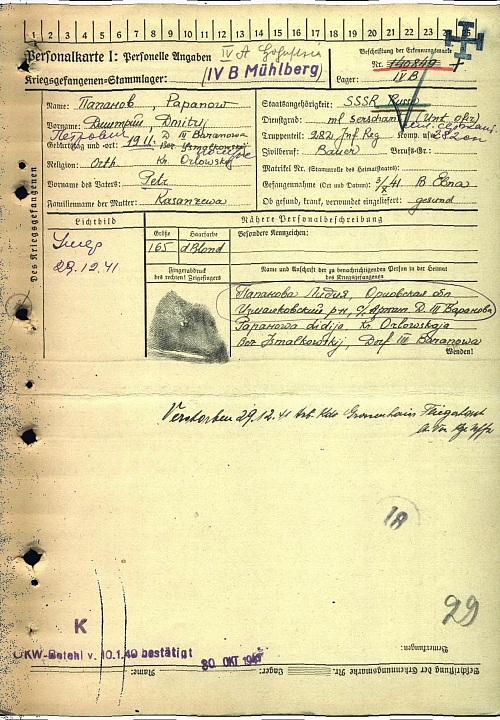 1 2 3 4 5 6 7 8 9 10 11 12 13 14 15 16 17 18 19 20 21 22 23 24 25
Personalkarte I: Personelle Angaben
IV A
Kriegsgefangenen-Stammlager: IV B Mühlberg
Beschriftung der Erkennungsmarke
Nr. 140849
Lager: IV B
Des Kriegsgefangenen
Name: Папанов, Papanow
Vorname: Дмитрий, Dmitry
Петрович
Geburtstag und -ort: 1911 D III Baranowa
Religion: Orth. Kr. Orlowskaj
Vorname des Vaters: Petr
Familienname der Mutter: Kasanzewa
Staatsangehörigkeit: SSSR Russe
Dienstgrad: ml serschant (Unt. ofz)
Truppenteil: 282 Inf Reg Komp. usw.: 282 сп
Zivilberuf: Bauer
Matrikel Nr. (Stammrolle des Heimatstaates):
Gefangennahme (Ort und Datum): 3/X 41 B Elna
Ob gesund, krank, verwundet eingeliefert: gesund
Lichtbild
29.12.41
Nähere Personalbeschreibung
Größe Haarfarbe Besondere Kennzeichen:
165 d Blond
Fingerabdruck
des rechten! Zeigefingers
Name und Anschrift der zu benachrichtigenden Person in der Heimat
des Kriegsgefangenen
Папанова Лидия, Орловская обл
Измалковский р-н, Д. III Баранова
Papanowa Lidija, Kr. Orlowskaja
Bez Ismalkowskij, Dorf III Baranowa
Wenden!
Verstorben 29.12.41 Arb. Kdo Grossenhain
18
29
K
OKW-Befehl v. 10.1.40 bestätigt
30. OKT 1941
Bemerkungen:
Beschriftung der Erkennungsmarke Nr. Lager: Name: